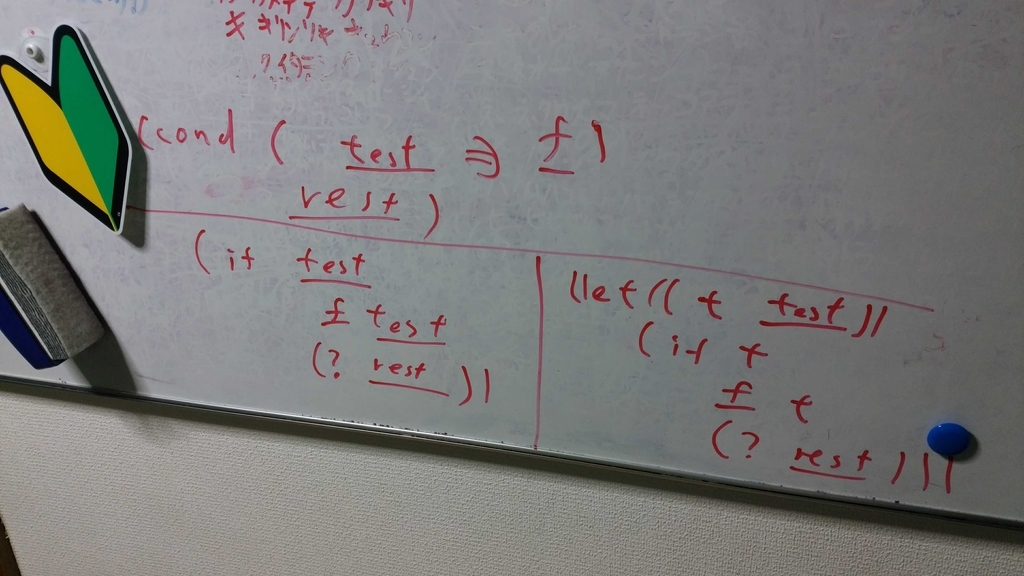 (cond ( test => f)
rest )
(if test
f test
(? rest ))
(let (( t test ))
(if t
f t
(? rest )))